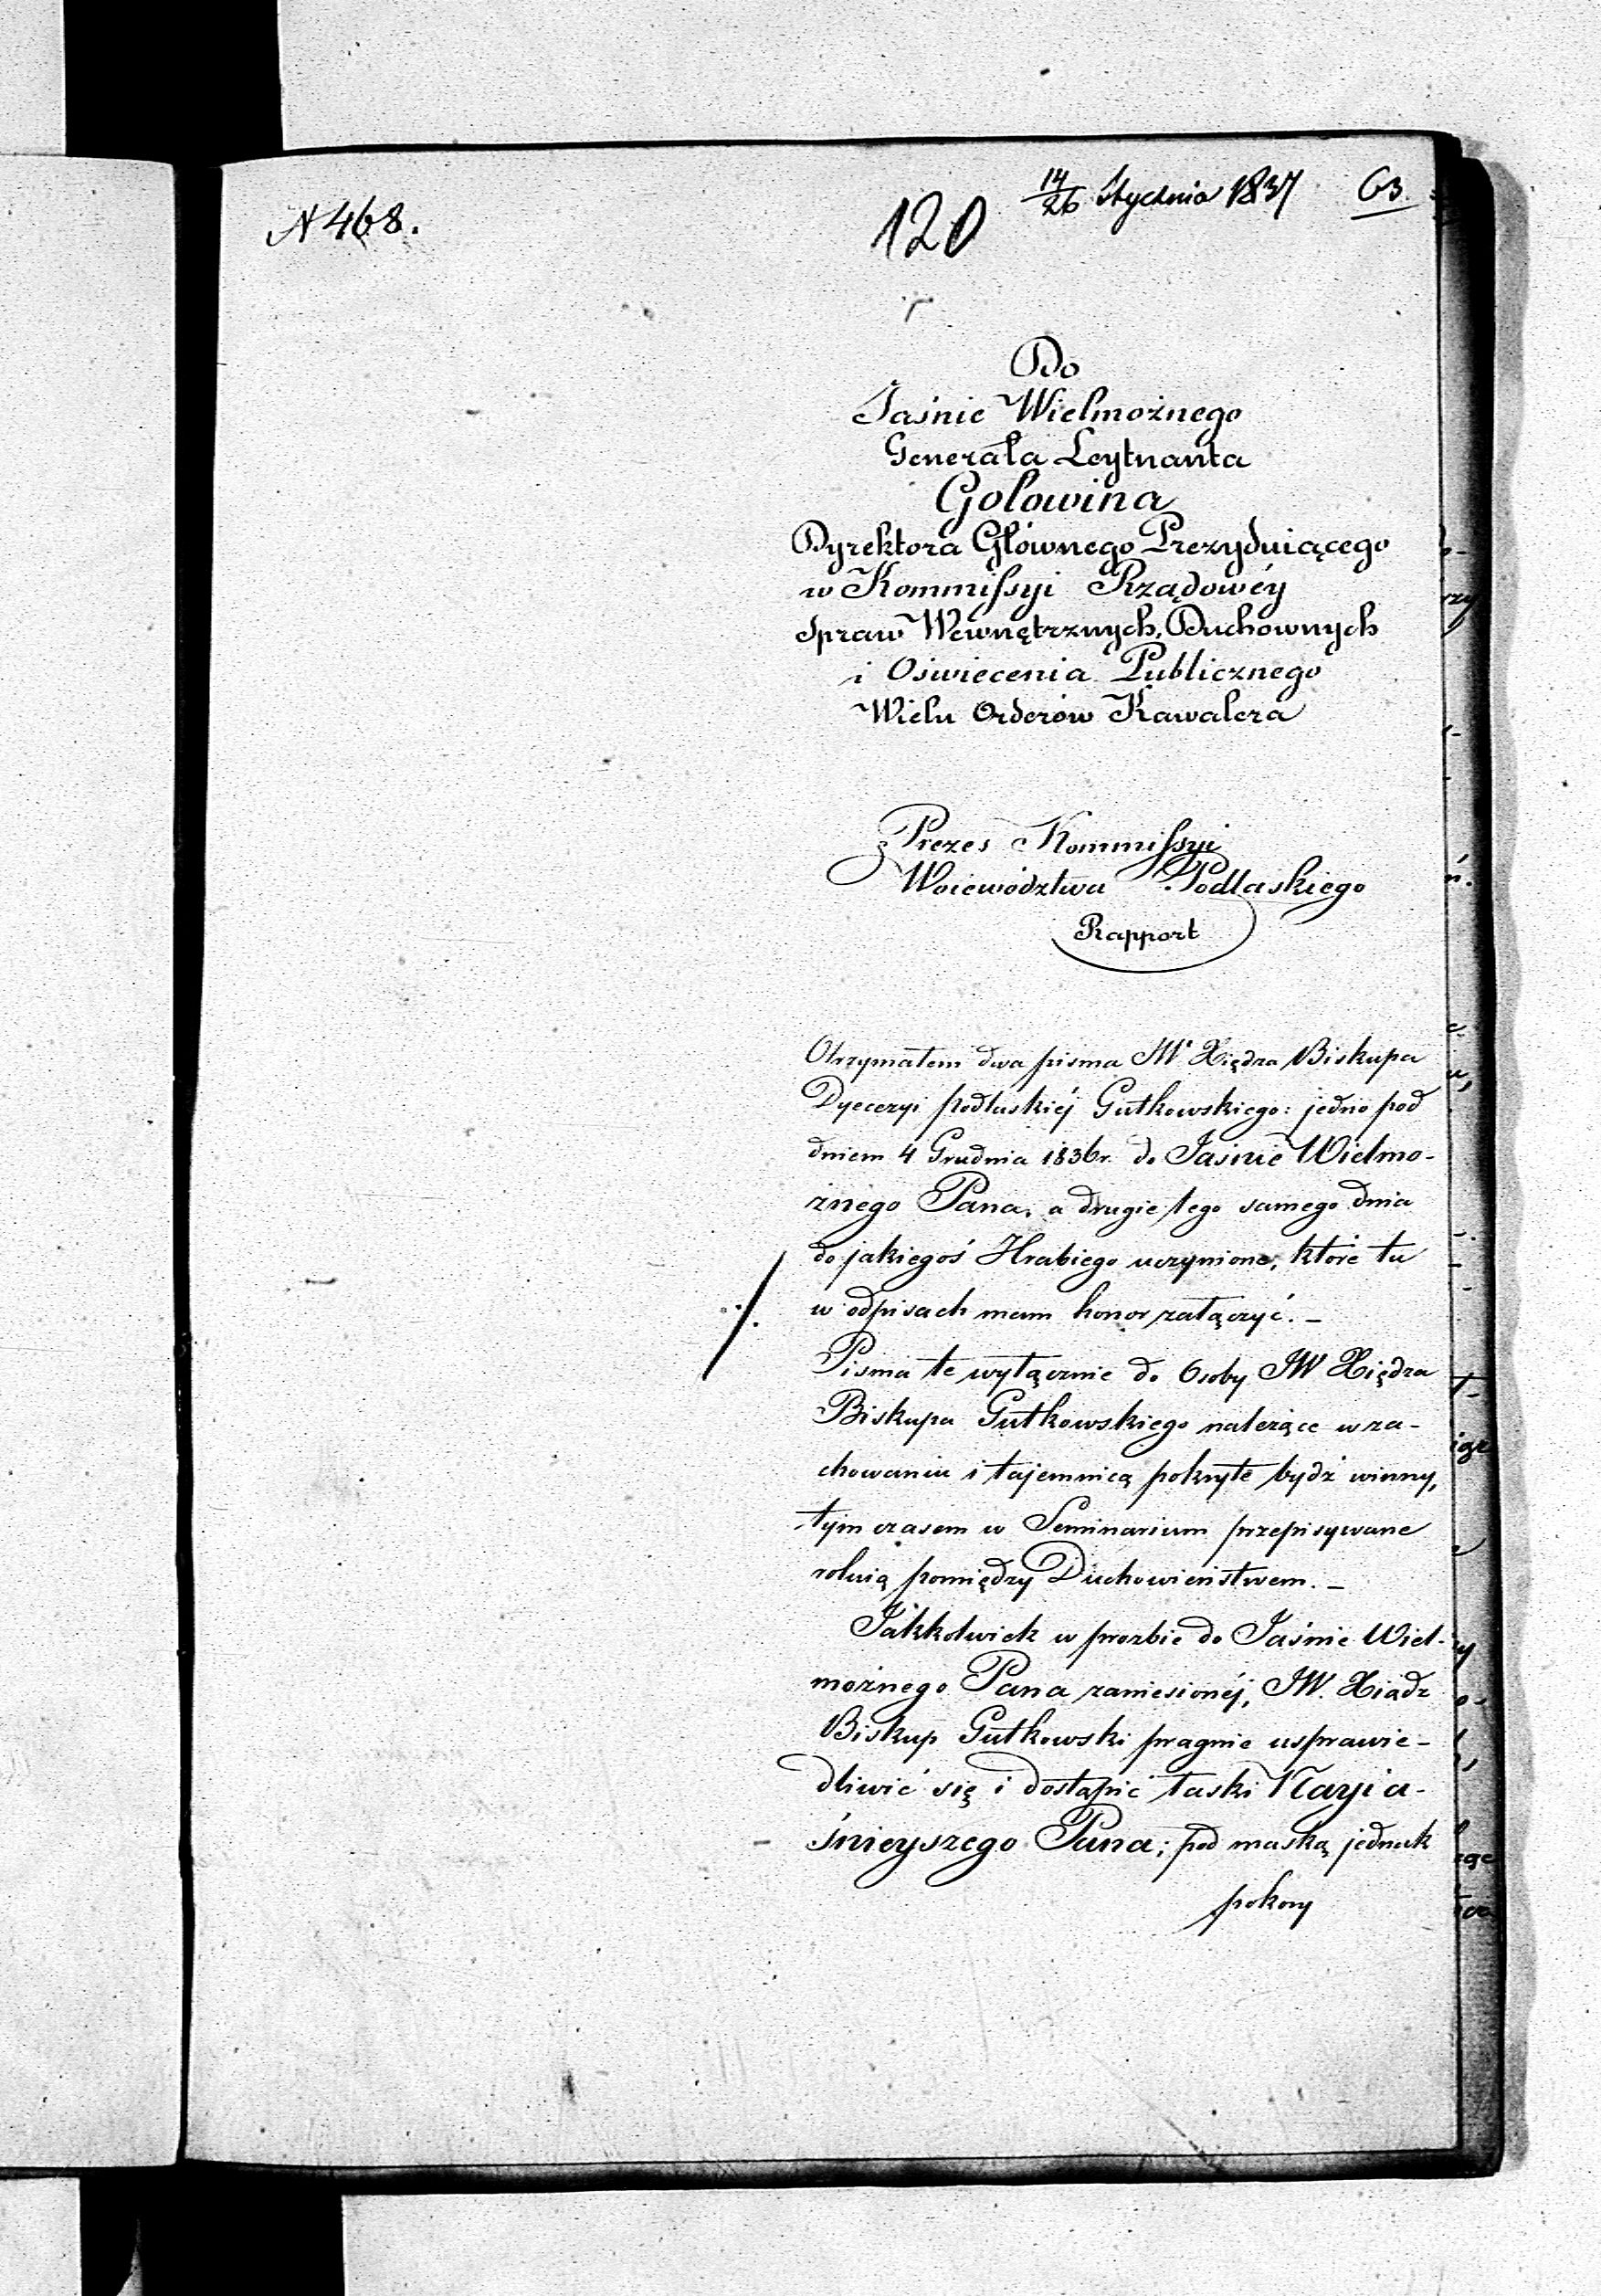 N 468.
120
14/26 Stycznia 1837
63.
Do
Jaśnie Wielmożnego
Generała Leytnanta
Golowina
Dyrektora Głównego Prezyduiącego
w Kommissyi Rządowéy
Spraw Wewnętrznych, Duchownych
i Oswiecenia Publicznego
Wielu Orderów Kawalera
Prezes Kommissyi
Woiewództwa Podlaskiego
Rapport
Otrzymałem dwa pisma JW Xiędza Biskupa
Dyecezyi podlaskiéj Gutkowskiego: jedno pod
dniem 4 Grudnia 1836 r. do Jaśnie Wielmo-
żnego Pana, a drugie tego samego dnia
do jakiegoś Hrabiego uczynione, które tu
w odpisach mam honor załączyć. –
Pisma te wyłącznie do Osoby JW Xiędza
Biskupa Gutkowskiego należące w za-
chowaniu i tajemnicą pokryte bydź winny,
tym czasem w Seminarium przepisywane
rolują pomiędzy Duchowieństwem. –
Jakkolwiek w prozbie do Jaśnie Wiel-
możnego Pana zaniesionéj, JW. Xiądz
Biskup Gutkowski pragnie usprawie-
dliwić się i dostąpić łaski Nayia-
śnieyszego Pana; pod maską jednak
pokory